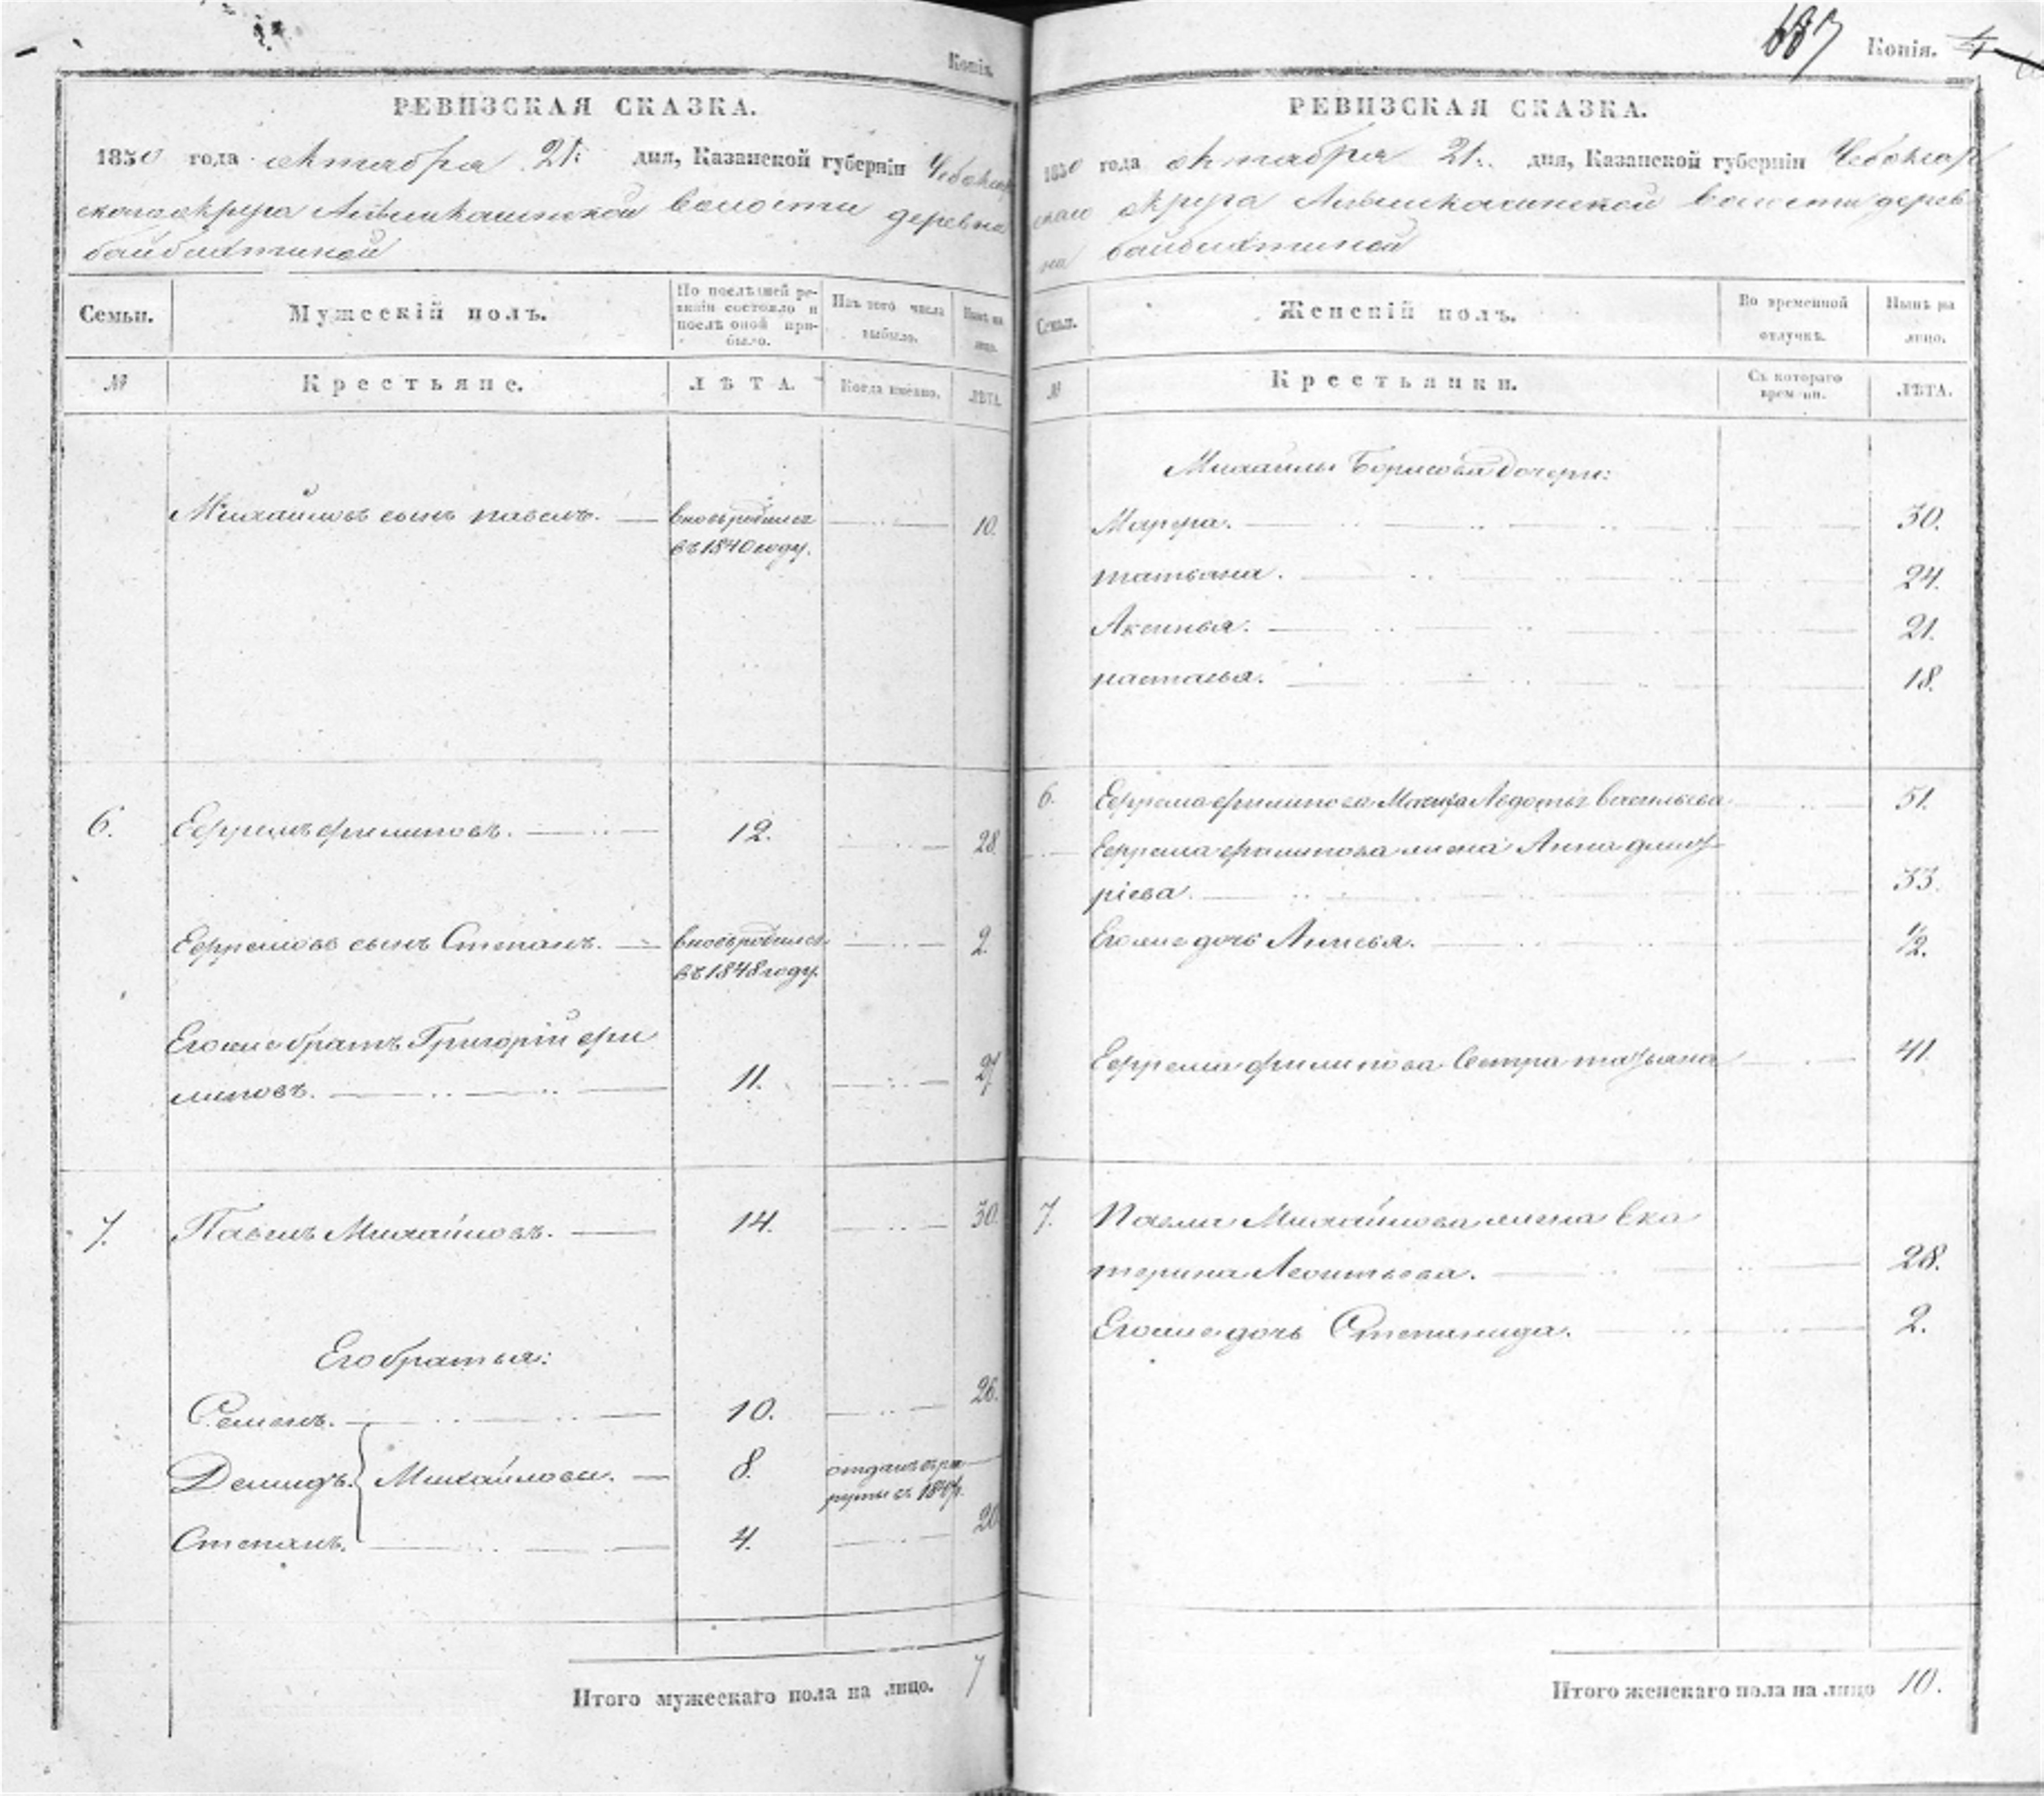 Копія.
РЕВИЗСКАЯ СКАЗКА.
1850 года октября 21: дня, Казанской губерніи Чебоксар
скаго округа волости деревни
байбахтиной
Семьи.
Мужескій полъ.
По послѣдней ре-
визіи состояло и
послѣ оной при-
было.
Изъ того числа
выбыло.
Нынѣ на
лицо.
№
Крестьяне.
ЛѢТА.
Когда именно.
ЛѢТА.
Михайловъ сынъ павелъ. вновьродился 10.
въ 1840 году.
6. Ефремъ филиповъ. 12. 28.
Ефремовъ сынъ Степанъ. вновьродился 2.
въ 1848 году.
Егоже братъ Григорій фи
липовъ. 11. 27
7. Павелъ Михайловъ. 14. 30.
Его братья:
Семенъ. 10. 26.
Демидъ. Михайловы. 8. отданъ въ ре
круты въ
Степанъ. 4. 20
Итого мужескаго пола на лицо. 7
Копія.
РЕВИЗСКАЯ СКАЗКА.
1850 года октября 21. дня, Казанской губерніи Чебоксар
скаго округа волости дерев
ни байбахтиной
Семьи.
Женскій полъ.
Во временной
отлучкѣ.
Нынѣ на
лицо.
№
Крестьянки.
Съ котораго
времени.
ЛѢТА.
Михайлы Борисова дочери:
Марфа. 30.
татьяна. 24.
Аксинья. 21.
настасья. 18.
6. Ефрема филипова Мачиха Авдотья васильева 51.
Ефрема филипова жена Анна дмит
ріева. 33.
Егоже дочь 1/2.
Ефрема филипова Сестра татьяна 41.
7. Павла Михайлова жена Ека
терина Леонтьева. 28.
Егоже дочь Степанида. 2.
Итого женскаго пола на лицо 10.